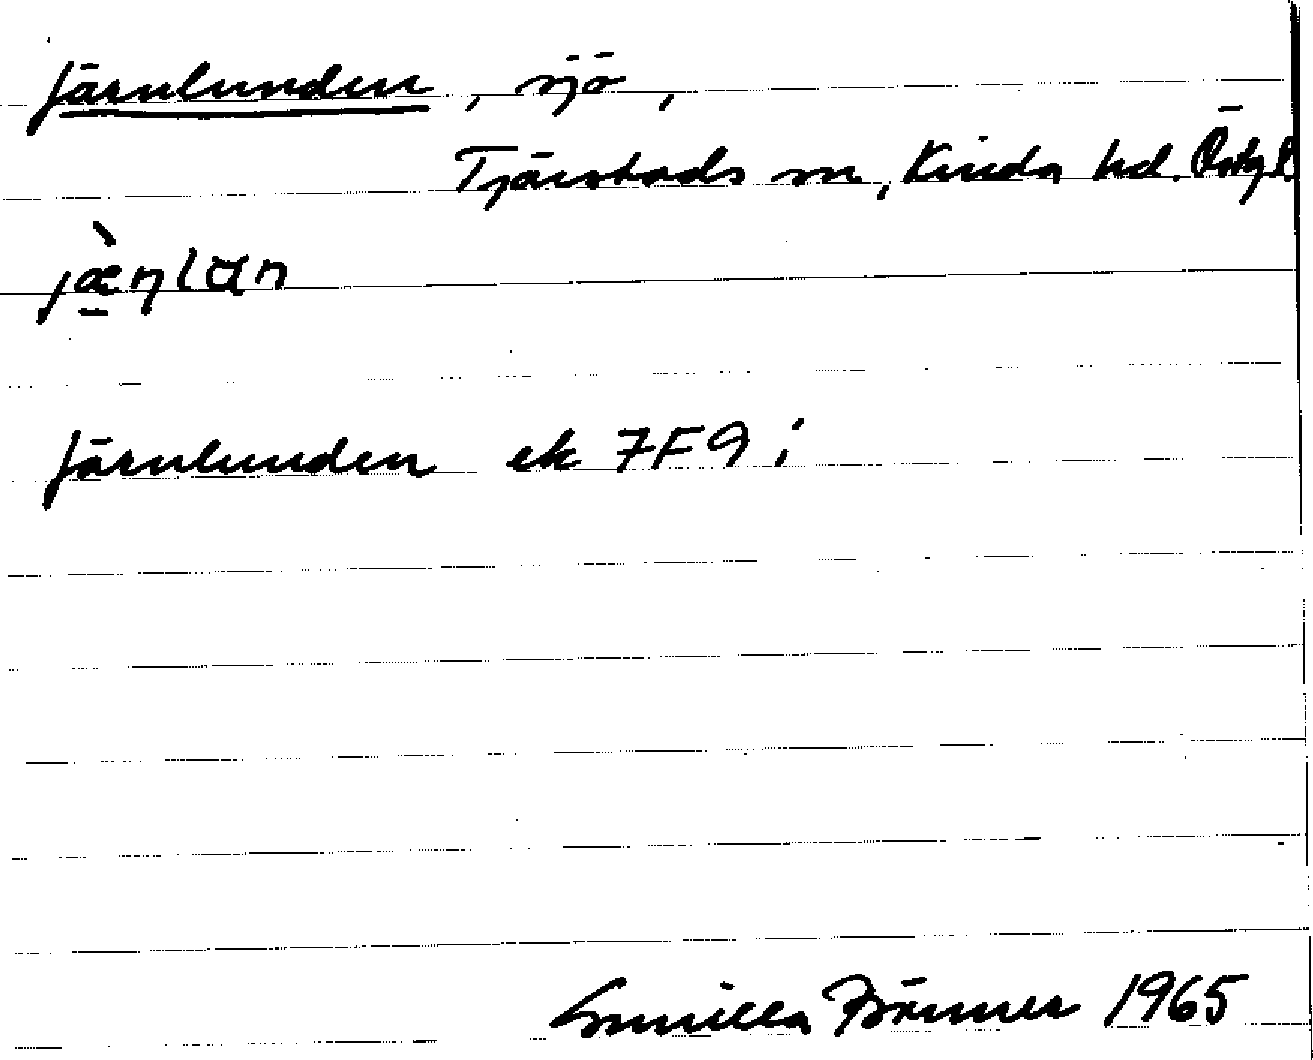 Järnlunden, sjö,
Tjärstads sn, Kinda hd. Östgl.
Järnlunden ek 7F9i
Gunilla 1965